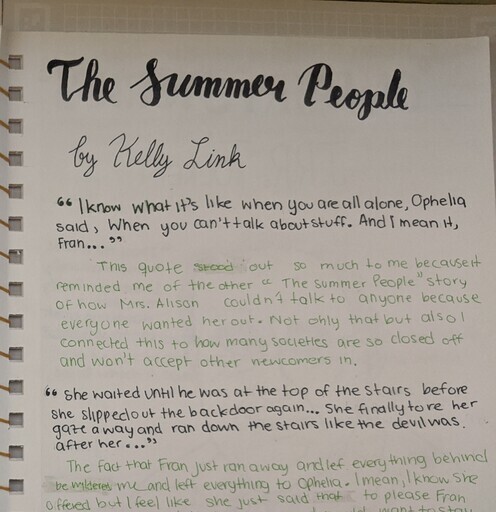 The Summer People
by Kelly Link
“ I know what it's like when you are all alone, Ophelia
said, When you can't talk about stuff. And I mean it,
Fran... ”
This quote stood out so much to me because it
reminded me of the other “ The Summer People" story
of how Mrs. Alison couldn't talk to anyone because
everyone wanted her out. Not only that but also I
connected this to how many societies are so closed off
and won't accept other newcomers in.
“ She waited until he was at the top of the stairs before
she slipped out the backdoor again... She finally tore her
gaze away and ran down the stairs like the devil was
after her... ”
The fact that Fran just ran away and lef everything behind
me and left everything to Ophelia. I mean, I know she
offered but I feel like she just said that to please Fran
want to stay